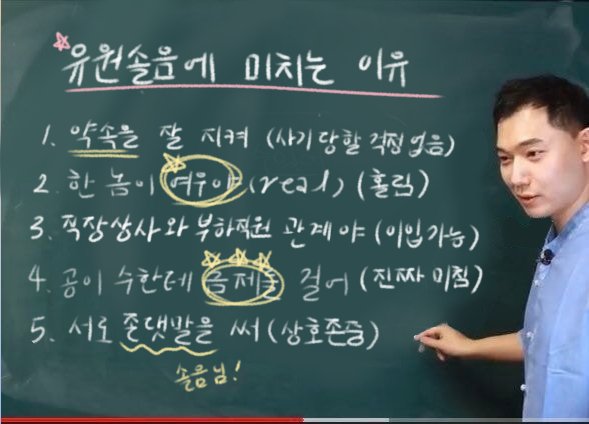 유원솔음에 미치는 이유
1. 약속을 잘 지켜 (사기당할 걱정 없음)
2. 한 놈이 여우야 (real) (홀림)
3. 직장상사와 부하직원 관계야 (이입가능)
4. 공이 수한테 금제를 걸어 (진짜 미침)
5. 서로 존댓말을 써 (상호존중)
솔음님!